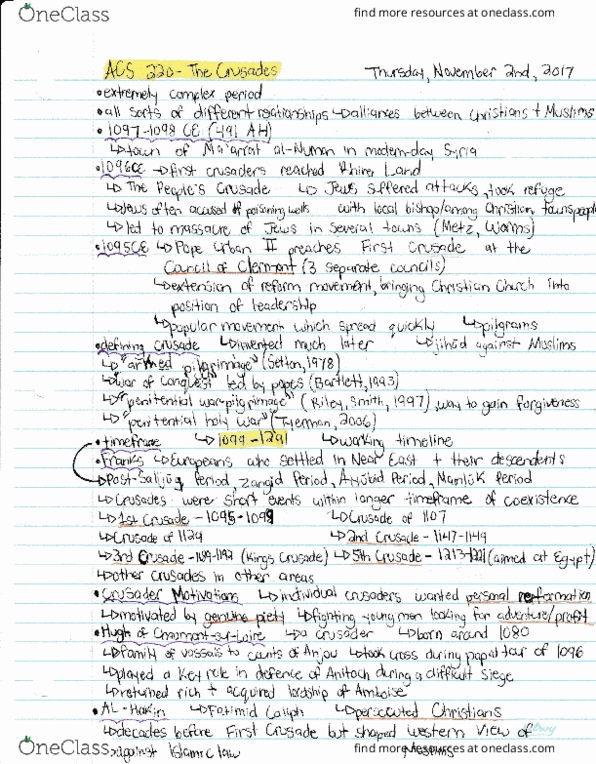 OneClass
find more resources at oneclass.com
ACS 220 - The Crusades Thursday, November 2nd, 2017
•extremely complex period
•all sorts of different relationships ↳alliances between Christians + Muslims
•1097-1098 CE (491 AH)
↳town of Ma'arrat al-Numan in modern-day Syria
•1096CE →first crusaders reached Rhine Land
↳The People's Crusade ↳Jews suffered attacks, took refuge
↳Jews often accused of poisoning wells with local bishop/among Christian townspeople
↳led to massacre of Jews in several towns (Metz, Worms)
•1095CE ↳Pope Urban II preaches First Crusade at the
Council of Clermont (3 separate councils)
↳extension of reform movement, bringing Christian Church into
position of leadership
↳popular movement which spread quickly ↳pilgrams
•defining crusade ↳invented much later ↳jihad against Muslims
↳"armed pilgrimage" (Setton, 1978)
↳"war of conquest" led by popes (Bartlett, 1993)
↳"penitential war-pilgrimage" (Riley, Smith, 1997), way to gain forgiveness
↳"penitential holy war" (Tyerman, 2006)
•timeframe ↳1099-1291 ↳working timeline
•Franks ↳Europeans who settled in Near East + their descendents
↳Post-Saljūq Period, Zangid Period, Ayūbid Period, Mamlūk Period
↳Crusades were short events within longer timeframe of coexistence
↳1st Crusade - 1095-1099 ↳Crusade of 1107
↳Crusade of 1129 ↳2nd Crusade - 1147-1149
↳3rd Crusade - 1189-1192 (Kings Crusade) ↳5th Crusade - 1213-1221 (aimed at Egypt)
↳other crusades in other areas
•Crusader Motivations ↳individual crusaders wanted personal reformation
↳motivated by genuine piety ↳fighting young men looking for adventure/profit
•Hugh of Chaumont-sur-Loire ↳a crusader ↳born around 1080
↳family of vassals to counts of Anjou ↳took cross during papal tour of 1096
↳played a key role in defence of Anitoch during a difficult siege
↳returned rich + acquired lordship of Amboise
•AL-Hakin ↳Fatimid Caliph ↳persecuted Christians
↳decades before First Crusade but shaped western view of
↳against Islamic law Muslims
OneClass
find more resources at oneclass.com